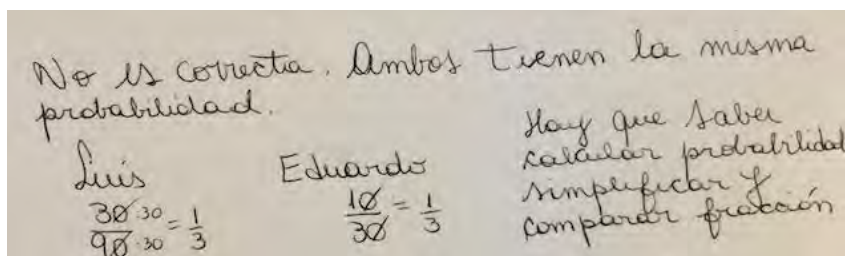 No es correcta. Ambos tienen la misma
probabilidad.
Luis
30:30 = 1
90:30 3
Eduardo
10 = 1
30 3
Hay que saber
calcular probabilidad
simplificar y
comparar fracción